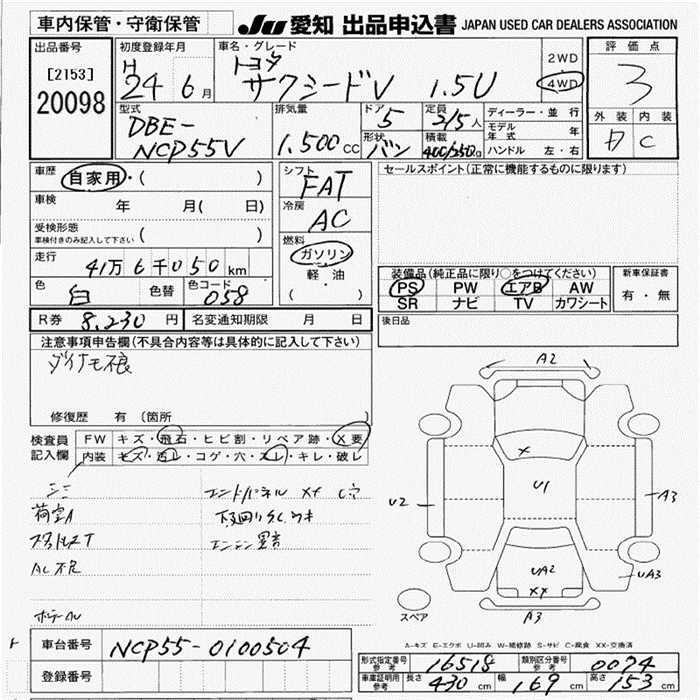 車内保管・守衛保管 JU 愛知 出品申込書 JAPAN USED CAR DEALERS ASSOCIATION
出品番号 初度登録年月 車名・グレード 評価点
[2153] H トヨタ 2WD
20098 24 6月 サクシードV 1.5U 4WD 3
外装 内装
型式 排気量 ドア 定員 ディーラー・並行
DBE- 5 2/5人 モデル年式 年 A C
NCP55V 1.500cc 形状 バン 積載 400/250kg ハンドル 左・右
車歴 自家用・( ) シフト FAT セールスポイント(正常に機能するものに限ります)
車検 年 月( 日) 冷房 AC
受検形態 車検付きのみ記入して下さい ( ) 燃料
走行 41万6千050km ガソリン 装備品(純正品に限り○をつけてください) 新車保証書
色 白 色替 色コード 058 軽・油 PS PW エアB AW 有・無
( ) SR ナビ TV カワシート
R券 8,230円 名変通知期限 月 日 後日品
注意事項申告欄(不具合内容等は具体的に記入して下さい)
ダイナモ不良
A2
修復歴 有 (箇所
検査員 FW キズ・飛石・ヒビ割・リペア跡・X要
記入欄 内装 キズ・汚レ・コゲ・穴・スレ・キレ・破レ
X
エンドパネル XX C穴
U2 U1 A3
荷室A 下回りサビ
エンジン異音
AC不良 UA2 UA3
XX
スペア A3
A-キズ E-エクボ U-凹み W-補修跡 S-サビ C-腐食 XX-交換済
車台番号 NCP55-0100504
登録番号
形式指定番号 参考 16518 類別区分番号 参考 0074
車庫証明用 参考 長さ 430cm 幅 169cm 高さ 153cm